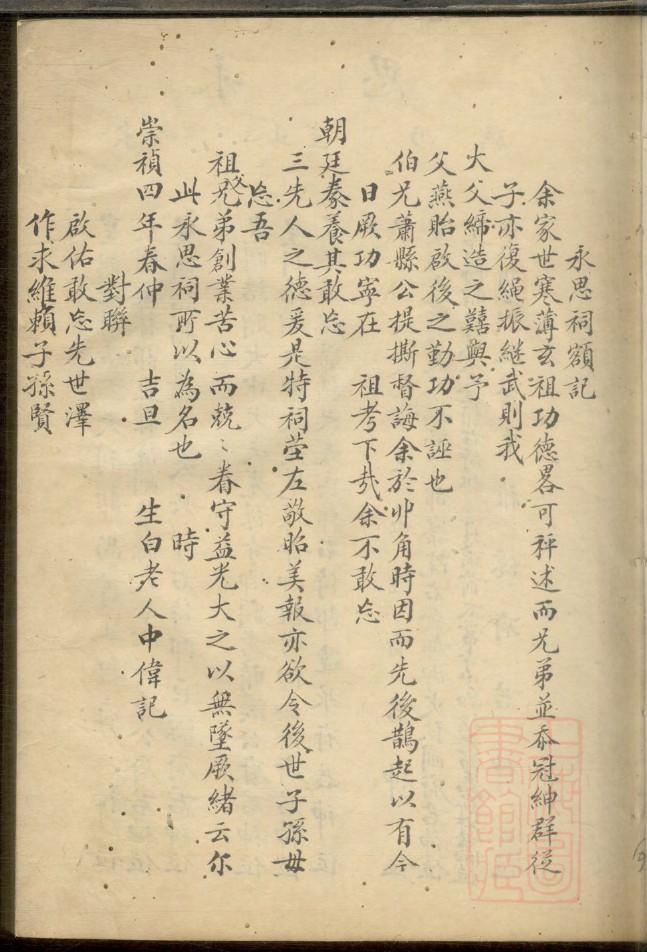 永思祠額記
余家世寒薄玄祖功德畧可秤述而兄弟並忝冠紳群從
子亦復繩振継武則我
大父締造之囏與予
父燕貽啟後之勤功不誣也
伯兄蕭縣公提撕督誨余於丱角時因而先後鵲起以有今
日厥功寧在 祖考下㢤余不敢忘
朝廷豢養其敢忘
三先人之德爰是特祠塋左敬昭美報亦欲令後世子孫毋
忘吾
祖父兄弟創業苦心而兢〻眷守益光大之以無墜厥緒云尔
此永思祠所以為名也 時
崇禎四年春仲 吉旦 生白老人中偉記
對聯
啟佑敢忘先世澤
作求維賴子孫賢